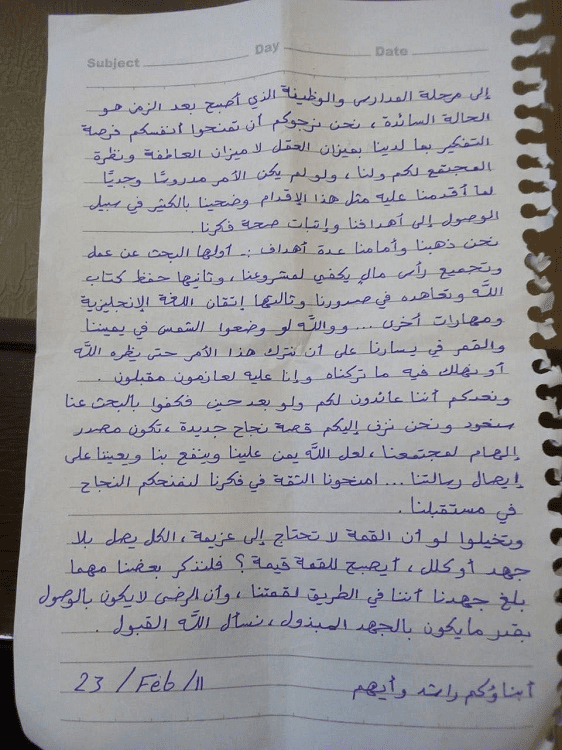 Subject Day Date
إلى مرحلة المدارس والوظيفة الذي أصبح بعد الزمن هو
الحالة السائدة، نحن نرجوكم أن تمنحوا أنفسكم فرصة
التفكير بما لدينا بميزان العقل لا ميزان العاطفة ونظرة
المجتمع لكم ولنا، ولو لم يكن الأمر مدروسًا وجديًّا
لما أقدمنا عليه مثل هذا الإقدام وضحينا بالكثير في سبيل
الوصول إلى أهدافنا وإثبات صحة فكرنا.
نحن ذهبنا وأمامنا عدة أهداف :ـ أولها البحث عن عمل
وتجميع رأس مالٍ يكفي لمشروعنا، وثانيها حفظ كتاب
اللّه وتعاهده في صدورنا وثالثها إتقان اللغة الإنجليزية
ومهارات أخرى ... وواللّه لو وضعوا الشمس في يميننا
والقمر في يسارنا على أن نترك هذا الأمر حتى يظهره اللّه
أو نهلك فيه ما تركناه وإنا عليه لعازمون مقبلون.
ونعدكم أننا عائدون لكم ولو بعد حين فكفوا بالبحث عنا
سنعود ونحن نزف إليكم قصة نجاح جديدة، تكون مصدر
إلهام لمجتمعنا، لعل اللّه يمن علينا وينفع بنا ويعيننا على
إيصال رسالتنا ... امنحونا الثقة في فكرنا لنمنحكم النجاح
في مستقبلنا.
وتخيلوا لو أن القمة لا تحتاج إلى عزيمة، الكل يصل بلا
جهد أو كلل، أيصبح للقمة قيمة؟ فلنذكر بعضنا مهما
بلغ جهدنا أننا في الطريق لقمتنا، وأن الرضى لا يكون بالوصول
بقدر ما يكون بالجهد المبذول، نسأل اللّه القبول.
أبناؤكم راشد وأيهم
23 / Feb / 11